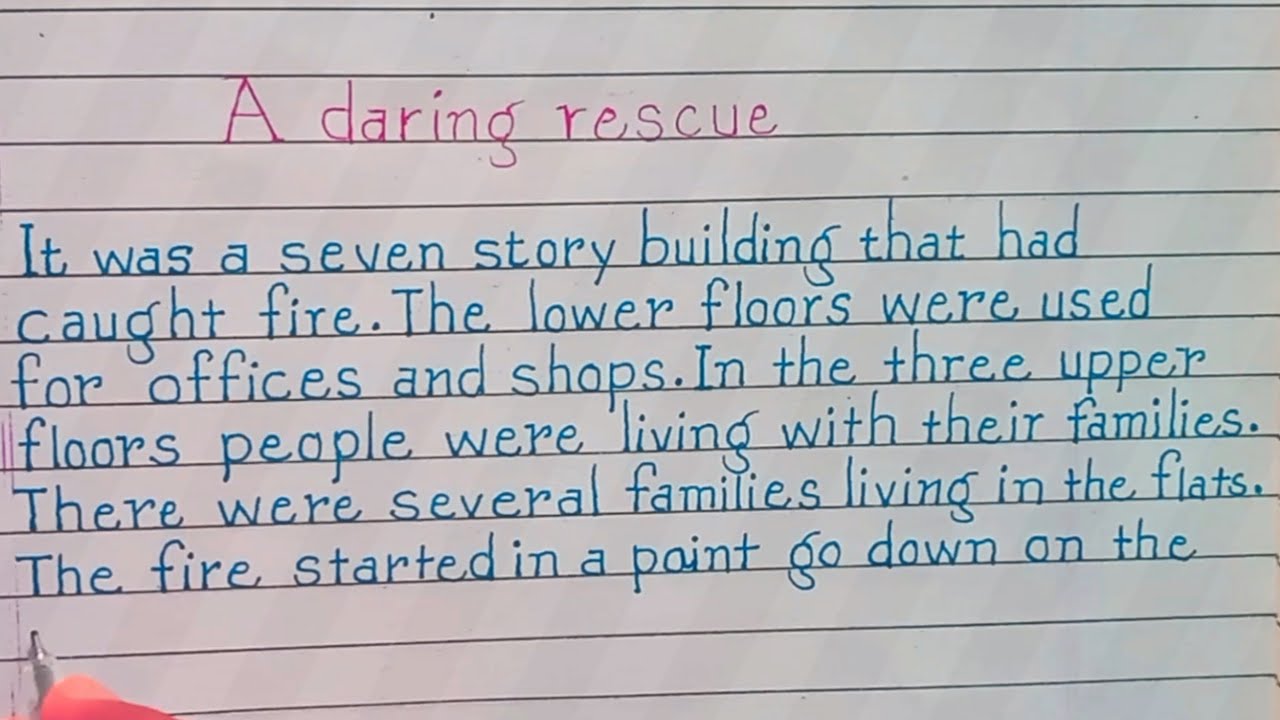 A daring rescue
It was a seven story building that had
caught fire. The lower floors were used
for offices and shops. In the three upper
floors people were living with their families.
There were several families living in the flats.
The fire started in a paint go down on the